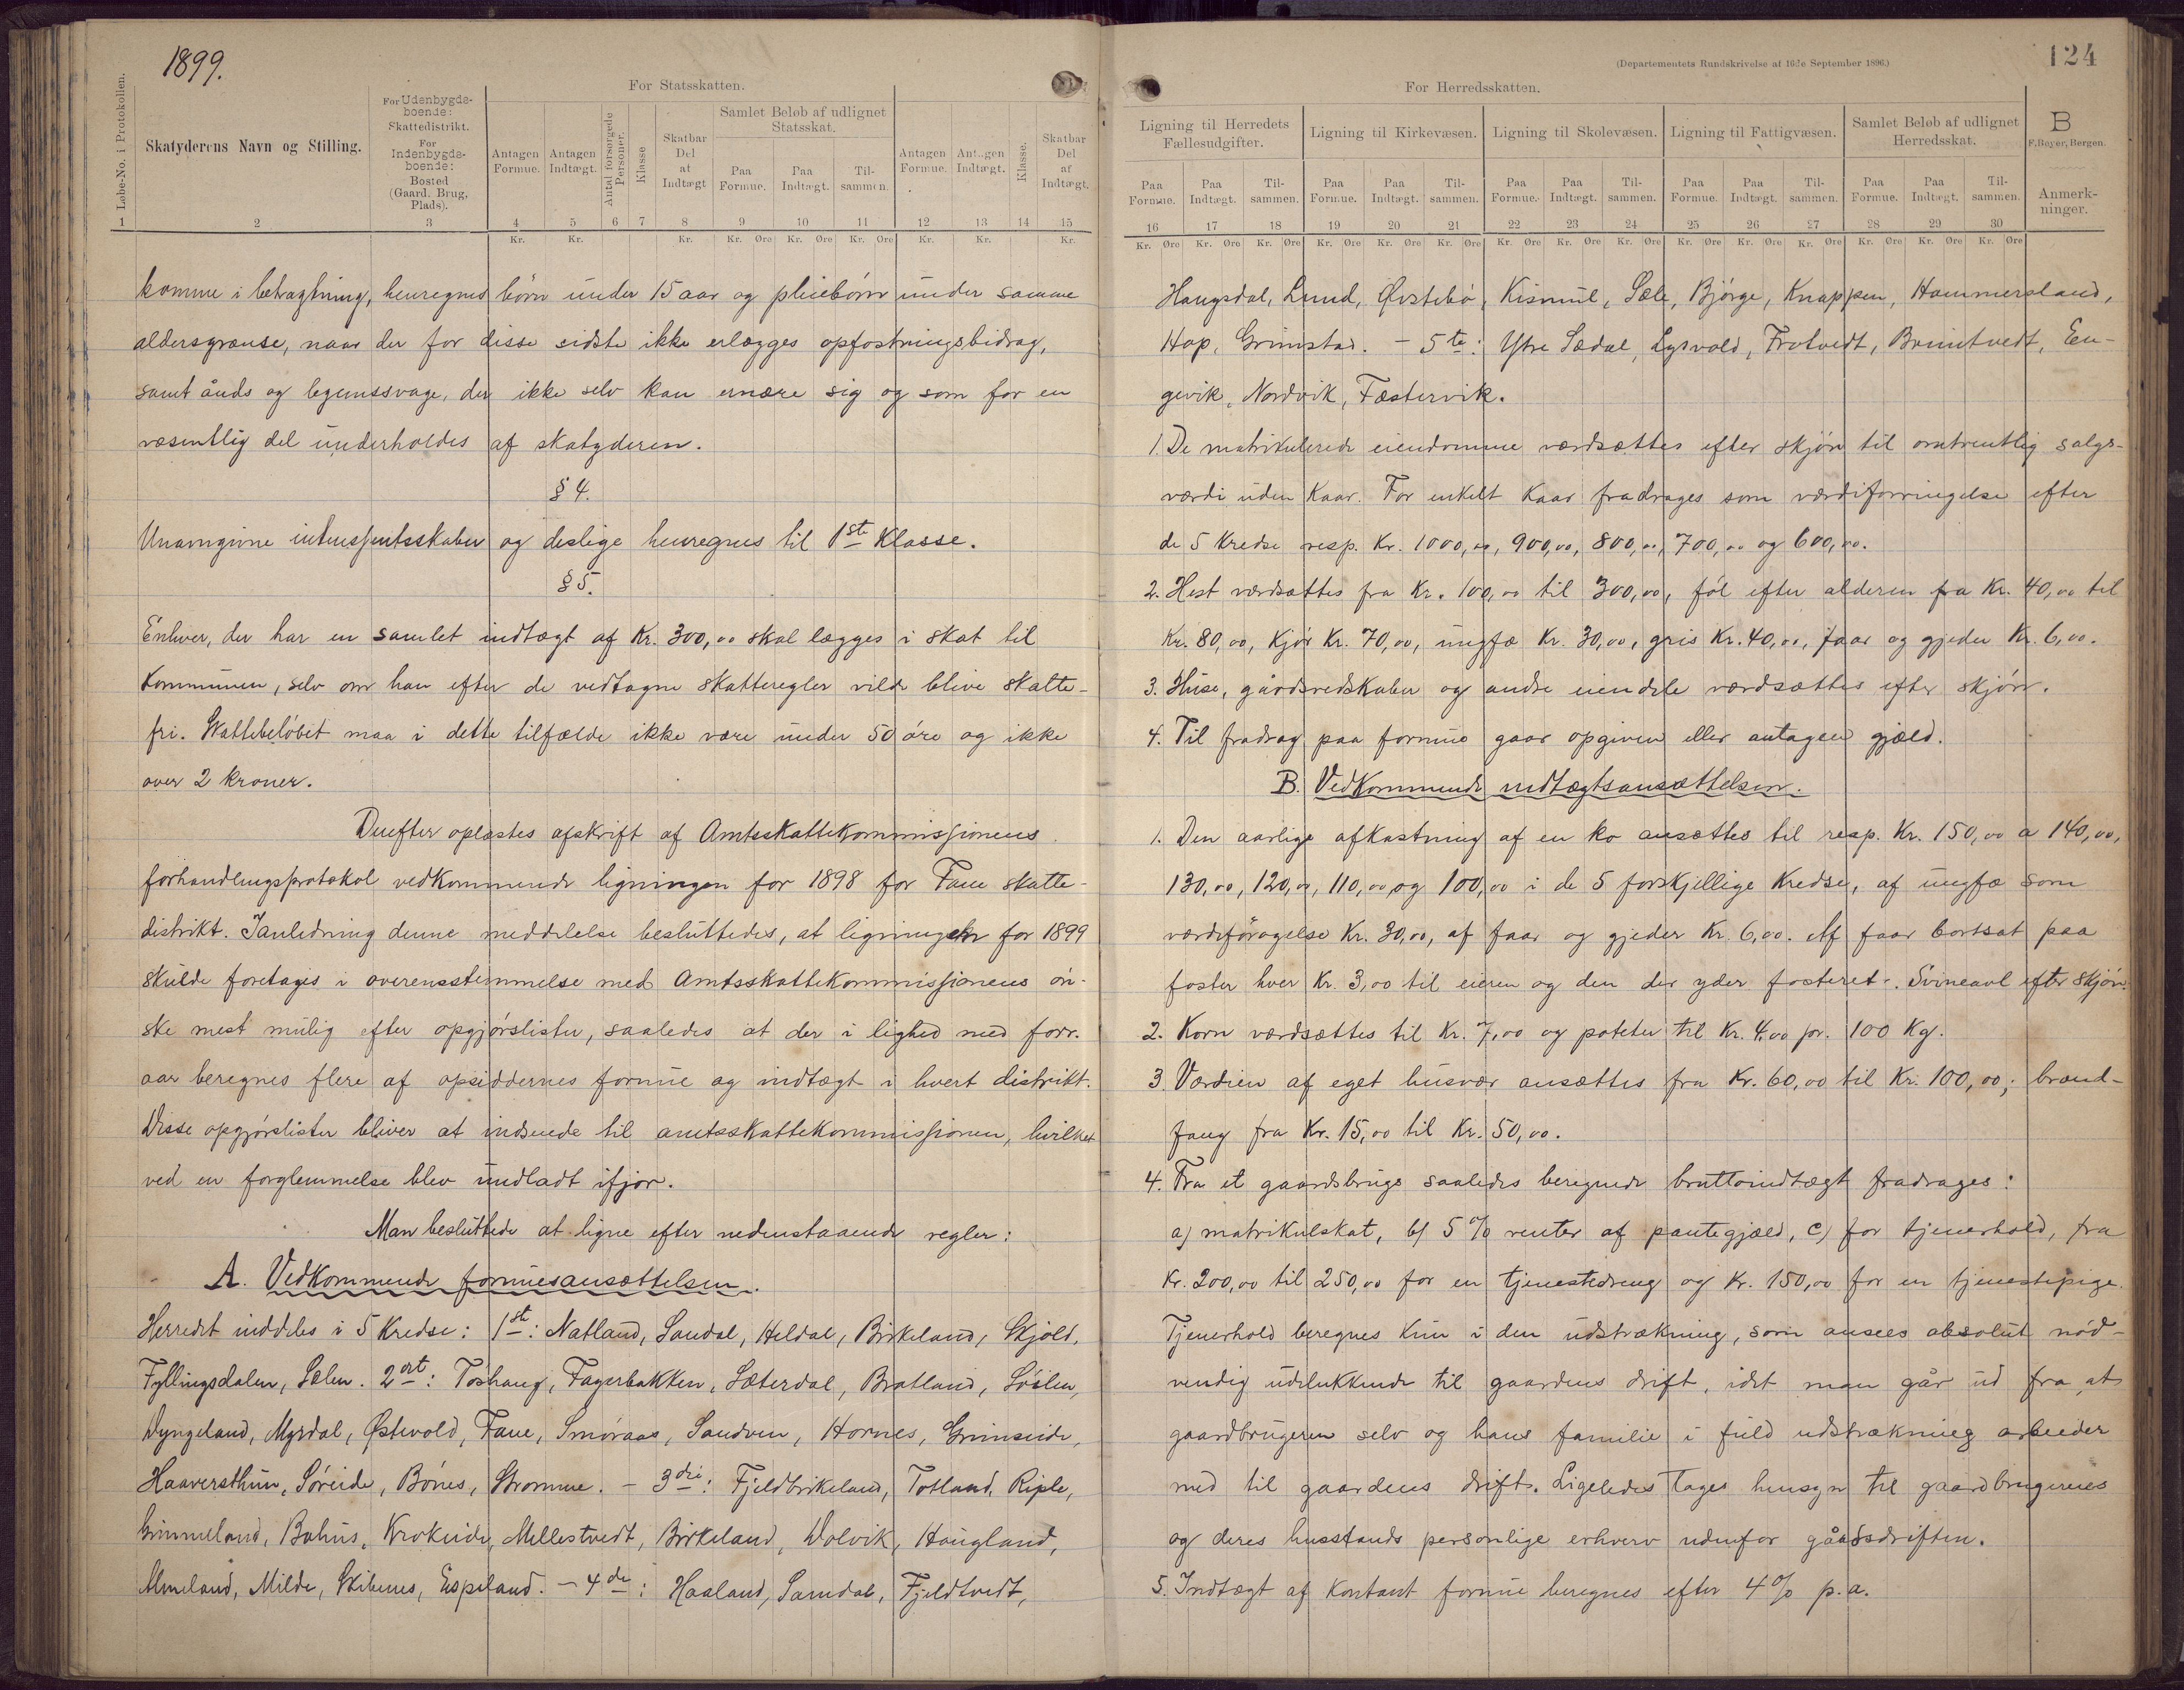 1899.
Løbe-No. i Protokollen.
Skatyderens Navn og Stilling.
For Udenbygds-
boende:
Skattedistrikt.
For
Indenbygds-
boende:
Bosted
(Gaard, Brug,
Plads).
For Statsskatten.
Antagen
Formue.
Antagen
Indtægt.
Antal forsørgede
Personer.
Klasse
Skatbar
Del
at
Indtægt
Samlet Beløb af udlignet
Statsskat.
Paa
Formue.
Paa
Indtægt.
Til-
sammen.
Antagen
Formue.
Antagen
Indtægt.
Klasse.
Skatbar
Del
af
Indtægt.
1 2 3 4 5 6 7 8 9 10 11 12 13 14 15
Kr. Kr. Kr. Kr. Øre Kr. Øre Kr. Øre Kr. Kr. Kr.
komme i betragtning, henregnes börn under 15 aar og pleiebörn under samme
aldersgrænse, naar der for disse sidste ikke erlægges opfostningsbidrag,
samt ånds og legemssvage, der ikke selv kan ernære sig og som for en
væsentlig del underholdes af skatyderen.
§ 4.
Unavngivne interessentsskaber og deslige henregnes til 1ste Klasse.
§ 5.
Enhver, der har en samlet indtægt af Kr. 300,00 skal lægges i skat til
Kommunen, selv om han efter de vedtagne skatteregler vilde blive skatte-
fri. Skattebelöbet maa i dette tilfælde ikke være under 50 öre og ikke
over 2 kroner.
Derefter oplæstes afskrift af Amtsskattekommissionens
forhandlingsprotokol vedkommende ligningen for 1898 for Fane skatte-
distrikt. I anledning denne meddelelse besluttedes, at ligningen for 1899
skulde foretages i overensstemmelse med Amtsskattekommissionens ön-
ske mest mulig efter opgjörslister, saaledes at der i lighed med forr.
aar beregnes flere af opsiddernes formue og indtægt i hvert distrikt.
Disse opgjörslister bliver at indsende til amtsskattekommissionen, hvilket
ved en forglemmelse blev undladt ifjor.
Man besluttede at ligne efter nedenstaaende regler:
A. Vedkommende formuesansættelsen.
Herredet inddeles i 5 Kredse: 1st: Natland, Sandal, Heldal, Birkeland, Skjold,
Fyllingsdalen, Sælen. 2det: Töshaug, Fagerbakken, Sæterdal, Bratland, Söilen,
Dyngeland, Myrdal, Østevold, Fane, Smöraas, Sandven, Hornes, Grimseide,
Haaversthun, Söreide, Bönes, Stromme. - 3die: Fjeldbirkeland, Totland, Riple,
Grimmeland, Bahus, Krokeide, Mellestvedt, Birkeland, Dolvik, Haugland,
Almeland, Milde, Skibenes, Espeland. - 4de: Haaland, Samdal, Fjeldtvedt,
(Departementets Rundskrivelse af 16de September 1896.)
124
For Herredsskatten.
Ligning til Herredets
Fællesudgifter.
Ligning til Kirkevæsen.
Ligning til Skolevæsen.
Ligning til Fattigvæsen.
Samlet Beløb af udlignet
Herredsskat.
B
F. Beyer, Bergen.
Anmerk-
ninger.
Paa
Formue.
Paa
Indtægt.
Til-
sammen.
Paa
Formue.
Paa
Indtægt.
Til-
sammen.
Paa
Formue.
Paa
Indtægt.
Til-
sammen.
Paa
Formue.
Paa
Indtægt.
Til-
sammen.
Paa
Formue.
Paa
Indtægt.
Til-
sammen.
16 17 18 19 20 21 22 23 24 25 26 27 28 29 30
Kr. Øre Kr. Øre Kr. Øre Kr. Øre Kr. Øre Kr. Øre Kr. Øre Kr. Øre Kr. Øre Kr. Øre Kr. Øre Kr. Øre Kr. Øre Kr. Øre Kr. Øre
Haugsdal, Lund, Øvstebö, Kismul, Sæle, Björge, Knappen, Hammersland,
Hop, Grimstad. - 5te: Ytre Sædal, Lysvold, Trotvedt, Bruntvedt, En-
gevik, Nordvik, Fæstervik.
1. De matrikulerede eiendomme værdsættes efter skjön til omtrentlig salgs-
værdi uden Kaar. For enkelt Kaar fradrages som værdiforringelse efter
de 5 Kredse resp. Kr. 1000,00, 900,00, 800,00, 700,00 og 600,00.
2. Hest værdsættes fra Kr. 100,00 til 300,00, föl efter alderen fra Kr. 40,00 til
Kr. 80,00, Kjör Kr. 70,00, ungfæ Kr. 30,00, gris Kr. 40,00, faar og gjeder Kr. 6,00.
3. Huse, gårdsredskaber og andre eiendele værdsættes efter skjön.
4. Til fradrag paa formue gaar opgiven eller antagen gjæld.
B. Vedkommende indtægtsansættelsen.
1. Den aarlige afkastning af en ko ansættes til resp. Kr. 150,00 a 140,00,
130,00, 120,00, 110,00 og 100,00 i de 5 forskjellige Kredse, af ungfæ som
værdiforøgelse Kr. 30,00, af faar og gjeder Kr. 6,00. Af faar bortsat paa
foster hver Kr. 3,00 til eieren og den der yder fosteret. Svineavl efter skjön.
2. Korn værdsættes til Kr. 7,00 og poteter til Kr. 4,00 pr. 100 Kg.
3. Værdien af eget husvær ansættes fra Kr. 60,00 til Kr. 100,00; brænd-
fang fra Kr. 15,00 til Kr. 50,00.
4. Fra et gaardsbrugs saaledes beregnede bruttoindtægt fradrages:
a) matrikulskat, b) 5 % renter af pantegjæld, c) for tjenerhold, fra
Kr. 200,00 til 250,00 for en tjenestedreng og Kr. 150,00 for en tjenestepige.
Tjenerhold beregnes kun i den udstrækning, som ansees absolut nöd-
vendig udelukkende til gaardens drift, idet man går ud fra at
gaardbrugeren selv og hans familie i fuld udstrækning arbeider
med til gaardens drift. Ligeledes tages hensyn til gaardbrugernes
og deres husstands personlige erhverv udenfor gårdsdriften.
5. Indtægt af Kontant formue beregnes efter 4 % p.a.